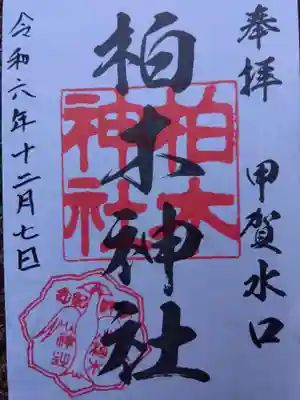 奉拝
甲賀水口
柏木神社
柏木
神社
令和六年十二月七日